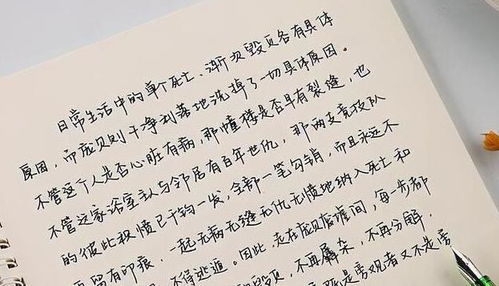 日常生活中的单个死亡、渐次毁灭各有具体
原因。而庞贝则干净利落地洗掉了一切具体原因。
不管这个人是否心脏有病，那幢楼是否早有裂缝，也
不管这家浴室主人与邻居有百年世仇，那两支竞技队
的彼此积愤已千钧一发，全部一笔勾销，而且永远不
留有印痕，一起无病无缝无仇无愤地纳入死亡和
不得逃遁。因此，走在庞贝废墟间，每一步都
毁灭，不再羼杂，不再分解，
是旁观者又不是旁